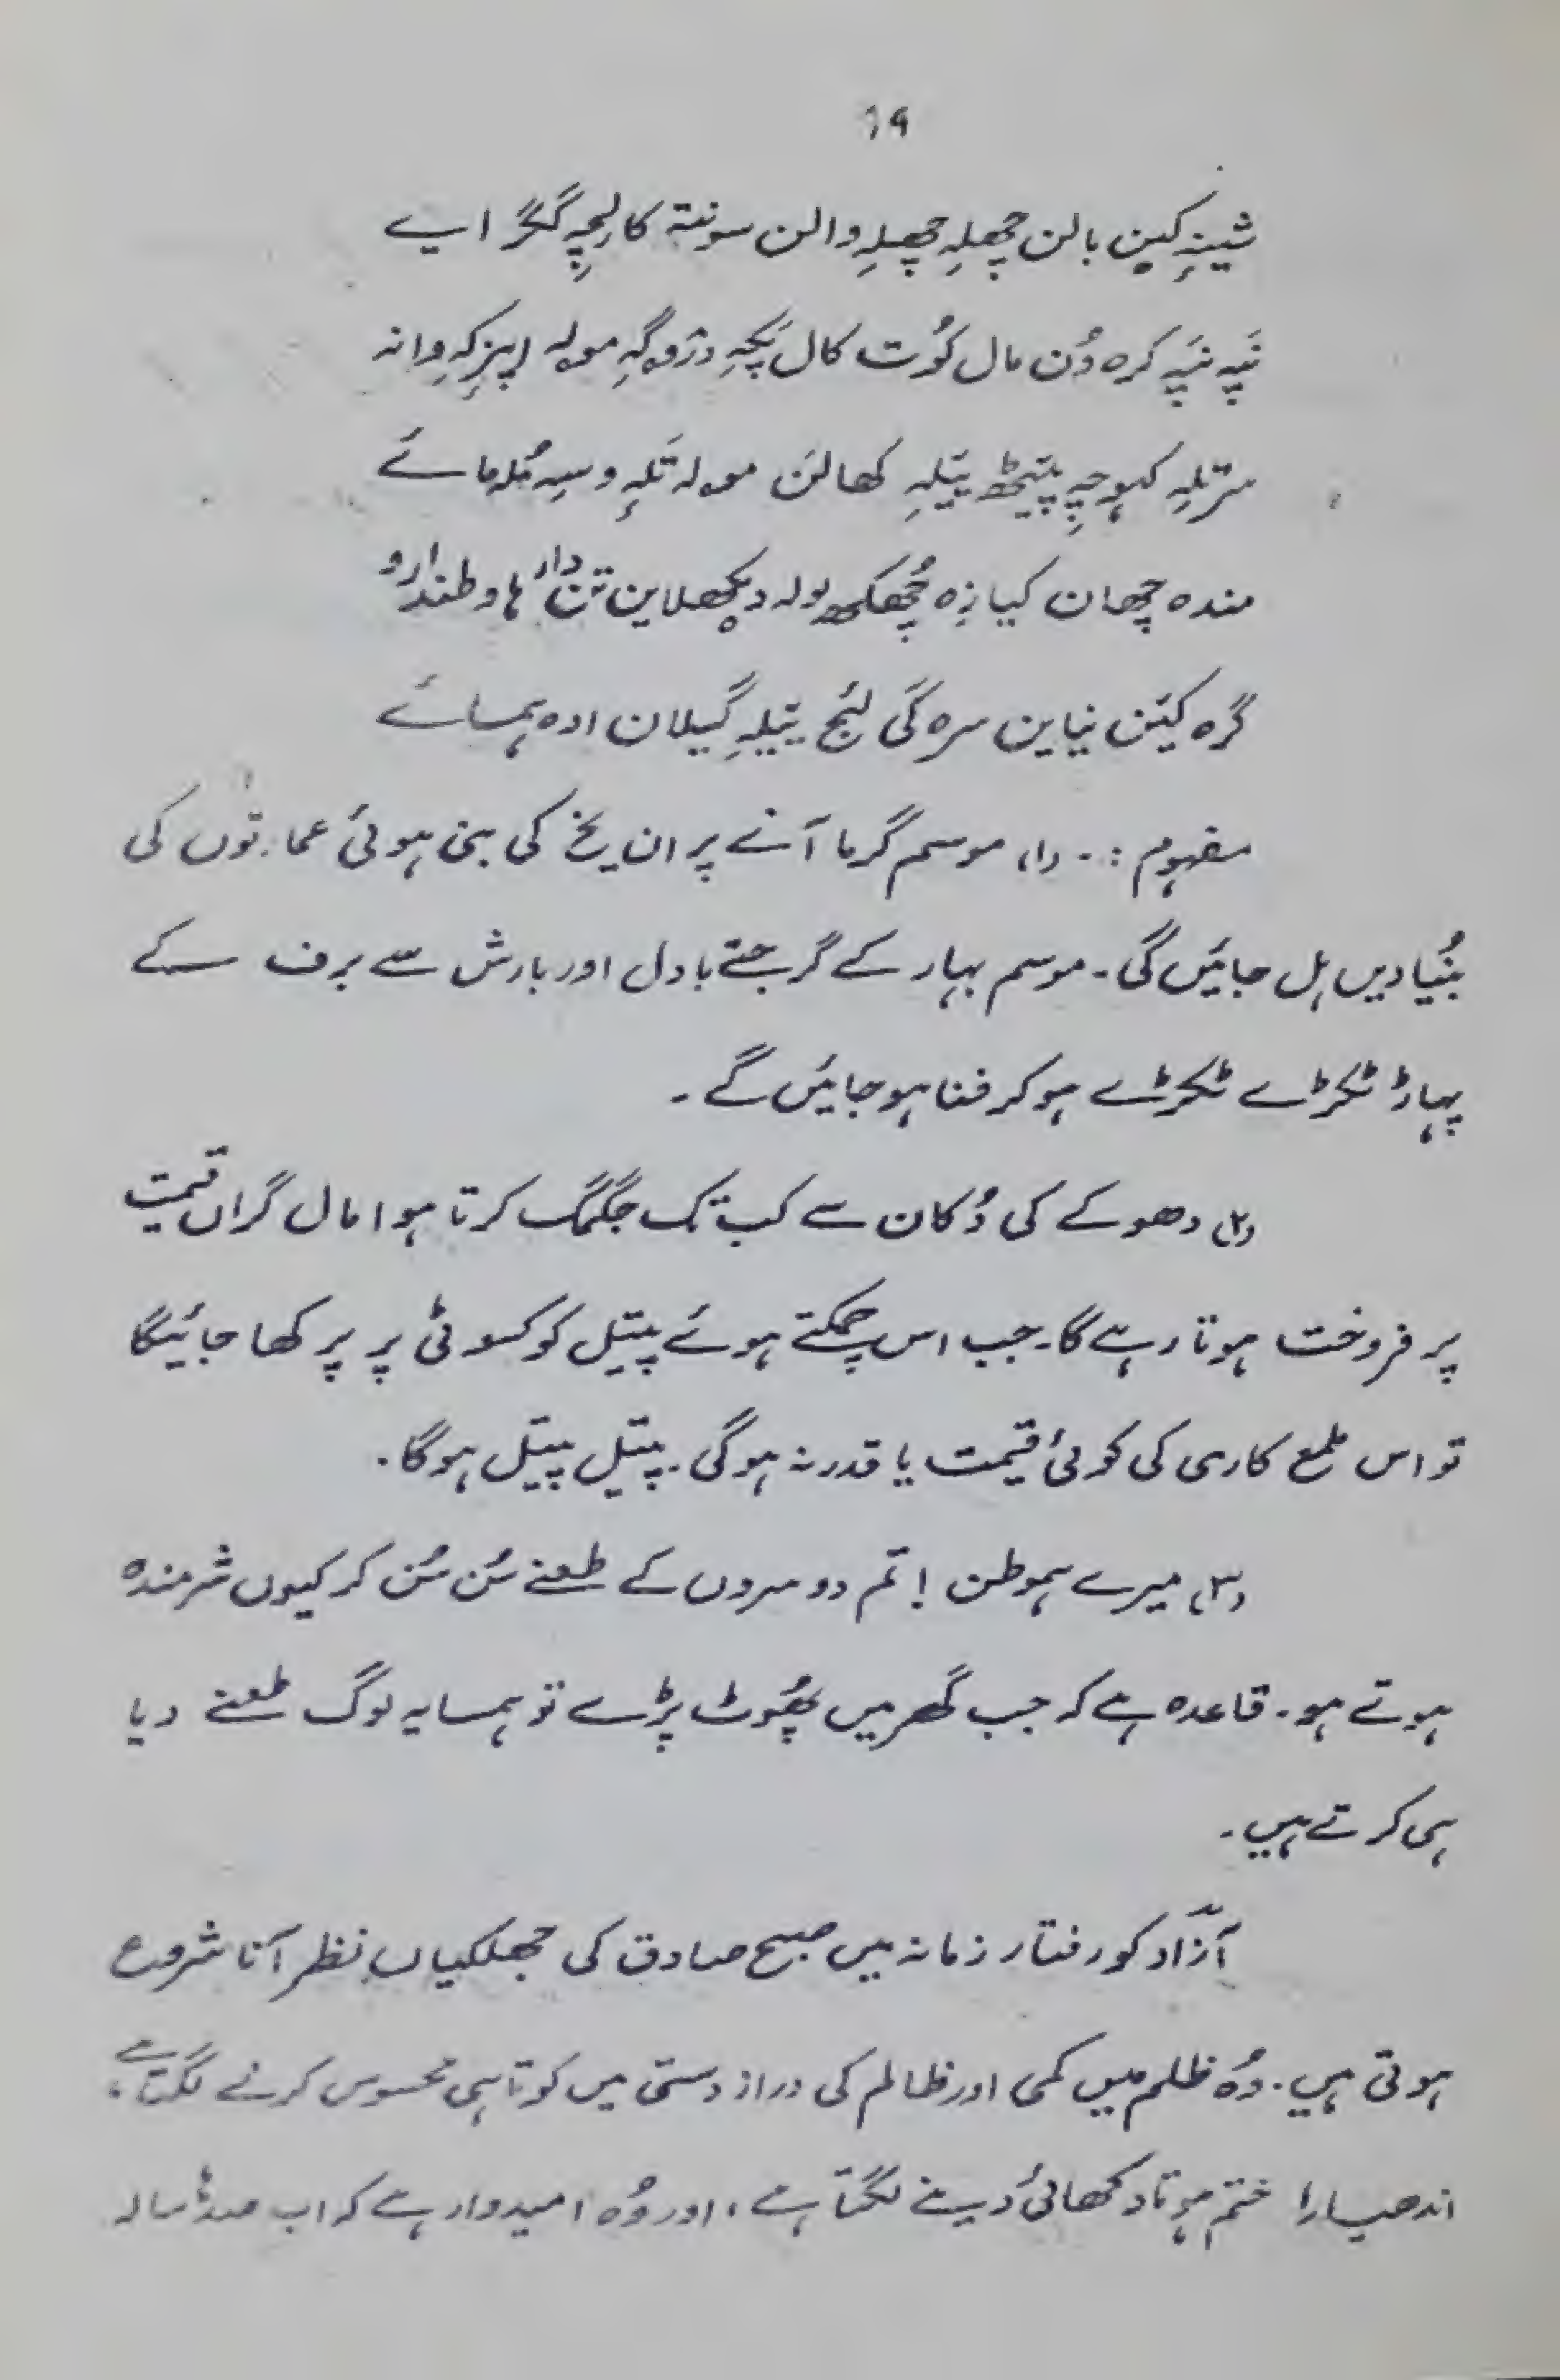 19
شینہِ کین بالن چھلہِ چھلہِ والن سونتہٕ کالچہِ گگرایے
نَپہِ نَپہِ کرہ وُن مال کوُت کال پَکہِ درۄگہِ مولہ اپزِکہِ وانہ
سرتلہِ کہوچہِ پیٹھ ییلہِ کھالن مولہ تَلہِ وسہِ مُلمائے
مندہ چھان کیازہ چھُکھ بولہ دیکھلاین تن دار ہا وطندارو
گرہ کین نیاین سرہ گی لَج ییلہِ گیلان ادہ ہمسائے
مفہوم :۔ (۱) موسم گرما آنے پر ان یخ کی بنی ہوئی عمارتوں کی
بُنیادیں ہل جائیں گی۔ موسم بہار کے گرجتے بادل اور بارش سے برف کے
پہاڑ ٹکڑے ٹکڑے ہو کر فنا ہو جائیں گے۔
(۲) دھوکے کی دُکان سے کب تک جگمگ کرتا ہوا مال گراں قیمت
پر فروخت ہوتا رہے گا۔ جب اس چمکتے ہوئے پیتل کو کسوٹی پر پرکھا جائیگا
تو اس ملمع کاری کی کوئی قیمت یا قدر نہ ہوگی۔ پیتل پیتل ہوگا۔
(۳) میرے ہموطن ! تم دوسروں کے طعنے سُن سُن کر کیوں شرمندہ
ہوتے ہو۔ قاعدہ ہے کہ جب گھر میں پھُوٹ پڑے تو ہمسایہ لوگ طعنے دیا
ہی کرتے ہیں۔
آزاد کو رفتار زمانہ میں صبح صادق کی جھلکیاں نظر آنا شروع
ہوتی ہیں۔ وُہ ظلم میں کمی اور ظالم کی دراز دستی میں کوتاہی محسوس کرنے لگتا ہے،
اندھیارا ختم ہوتا دکھائی دینے لگتا ہے، اور وُہ امیدوار ہے کہ اب صد سالہ